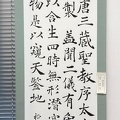 唐三藏聖教序太
製蓋聞二儀有像
以含生四時無形潛
物是以窺天鑑地